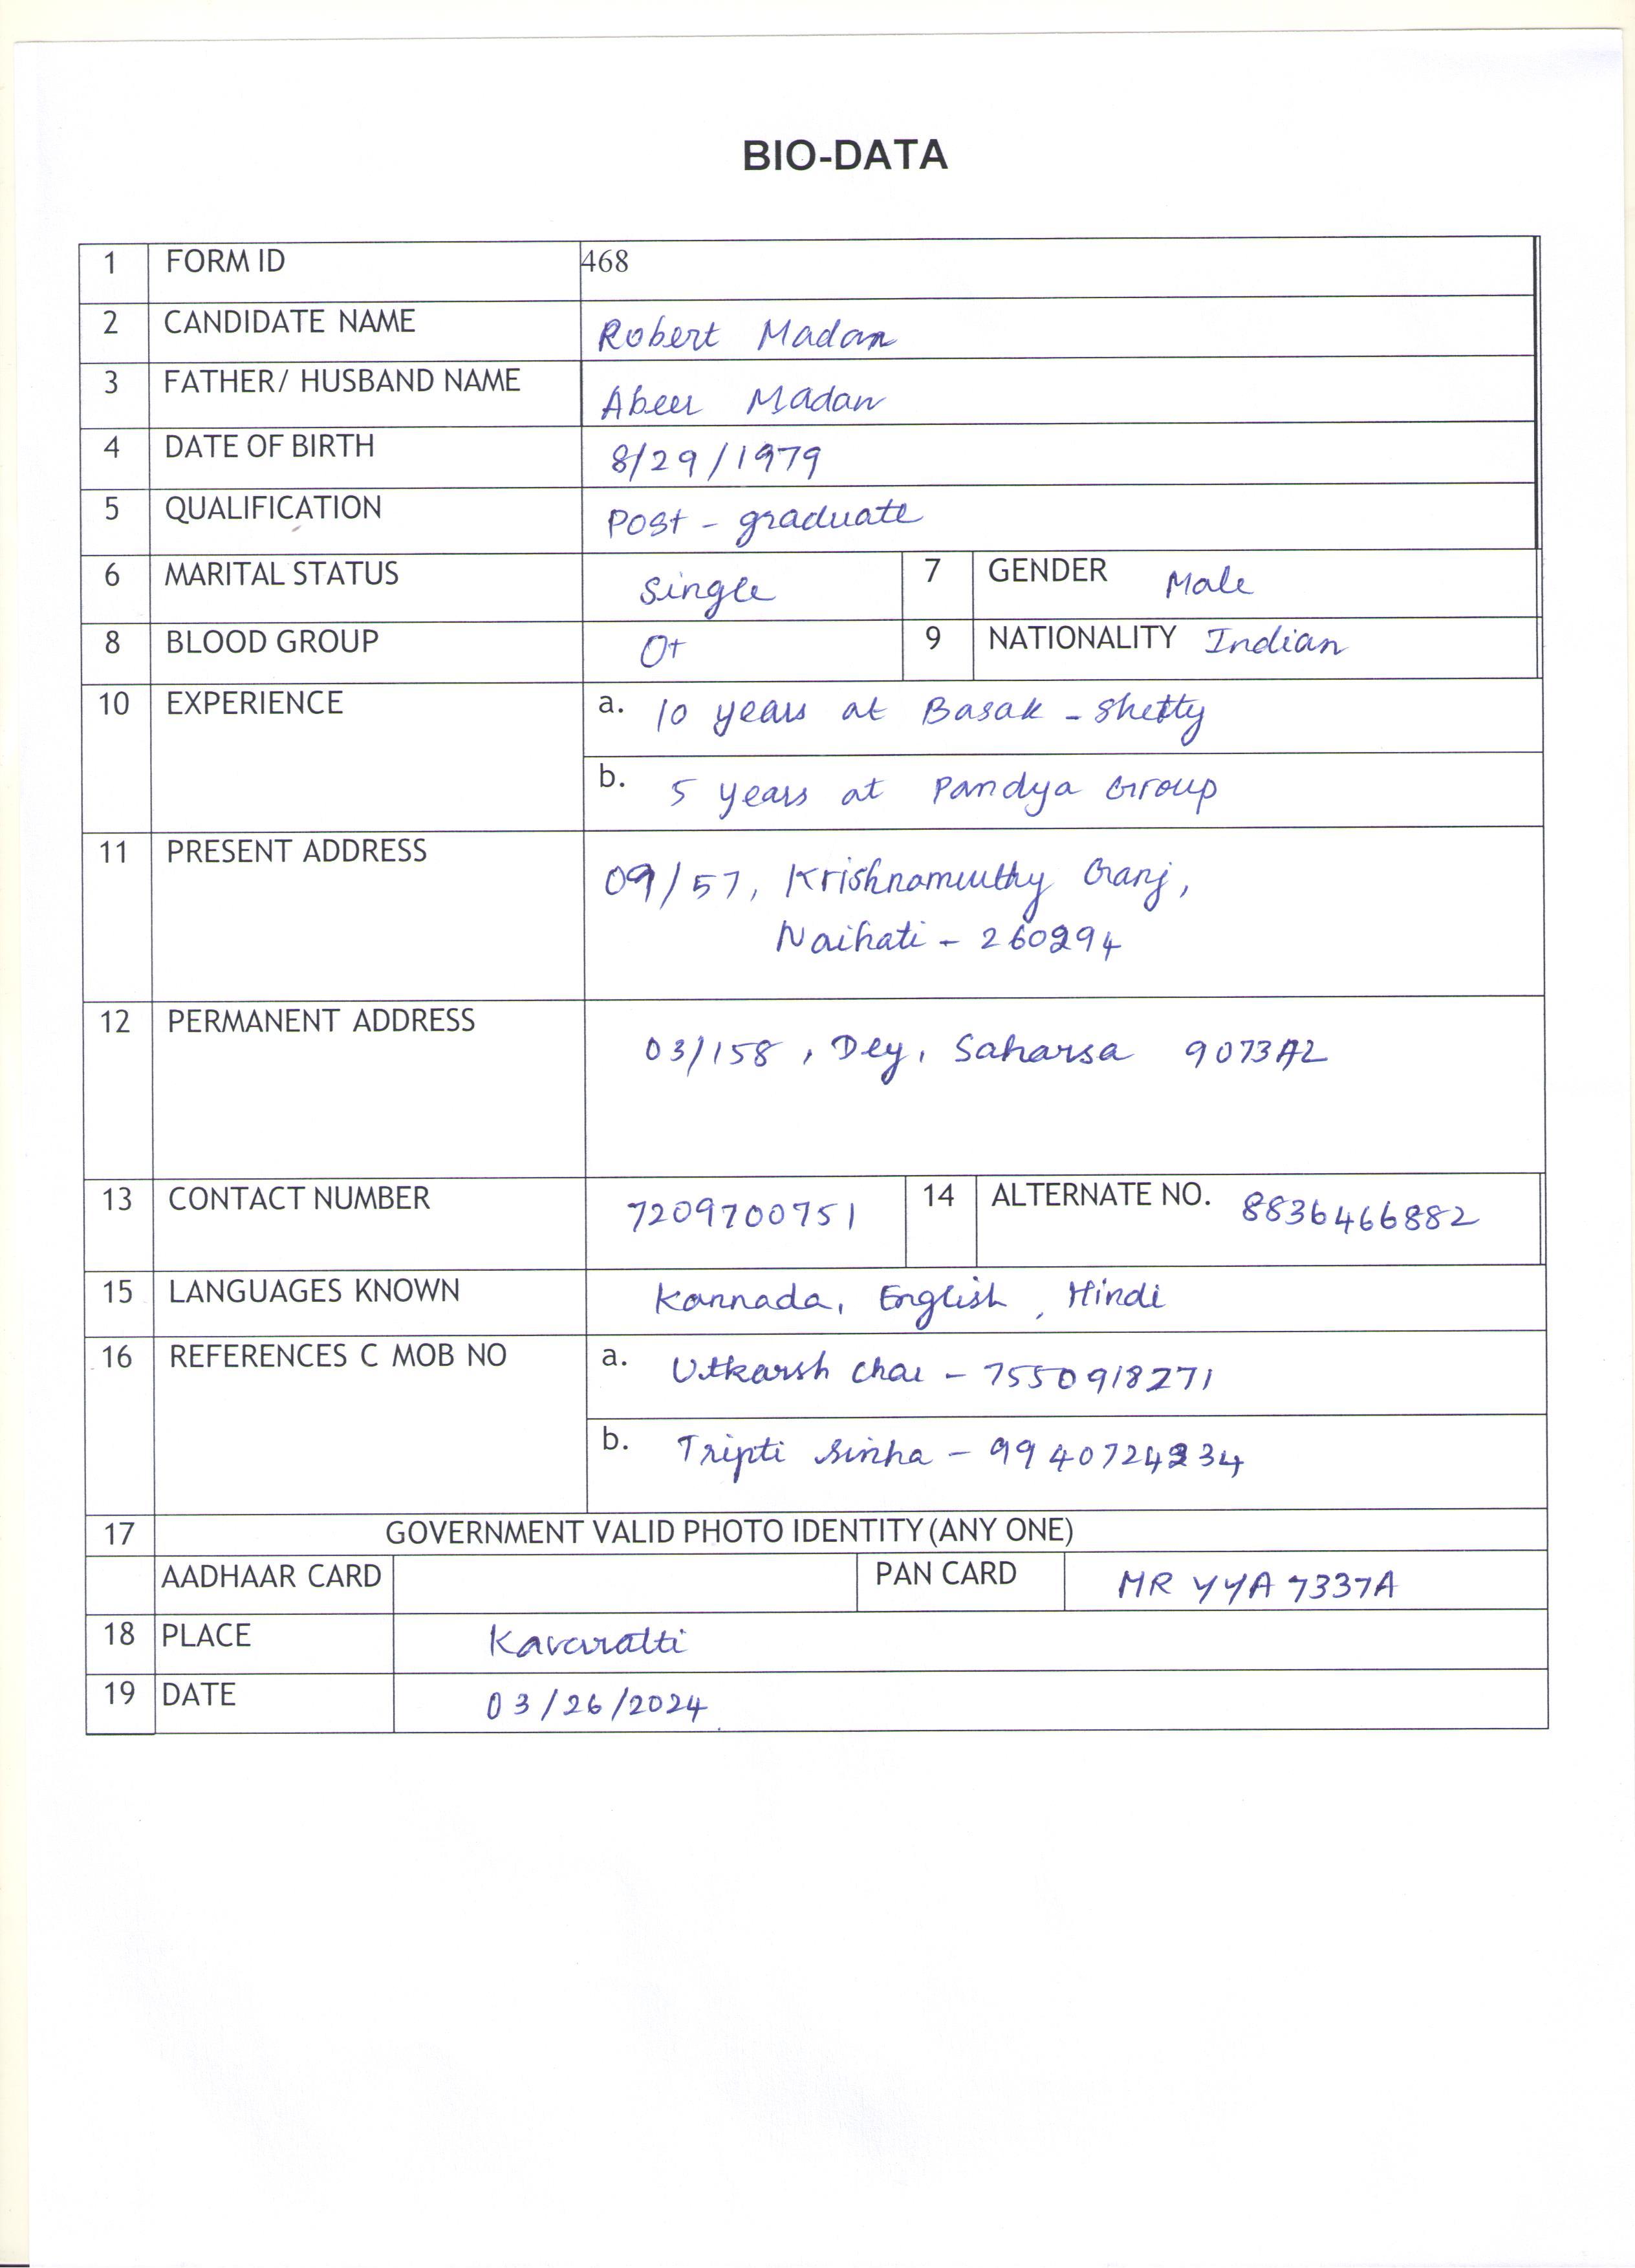 BIO-DATA
1 FORM ID 468
2 CANDIDATE NAME Robert Madan
3 FATHER/ HUSBAND NAME Abeer Madan
4 DATE OF BIRTH 8/29/1979
5 QUALIFICATION Post - graduate
6 MARITAL STATUS Single 7 GENDER Male
8 BLOOD GROUP O+ 9 NATIONALITY Indian
10 EXPERIENCE a. 10 years at Basak - Shetty
b. 5 years at Pandya Group
11 PRESENT ADDRESS 09/57, Krishnamurthy Ganj,
Naihati -
12 PERMANENT ADDRESS 03/158, Dey, Saharsa
13 CONTACT NUMBER 7209700751 14 ALTERNATE NO. 8836466882
15 LANGUAGES KNOWN Kannada, English, Hindi
16 REFERENCES C MOB NO a. Utkarsh Char - 7550918271
b. Tripti Sinha -
17 GOVERNMENT VALID PHOTO IDENTITY (ANY ONE)
AADHAAR CARD PAN CARD MRYYA7337A
18 PLACE Kavaratti
19 DATE 03/26/2024